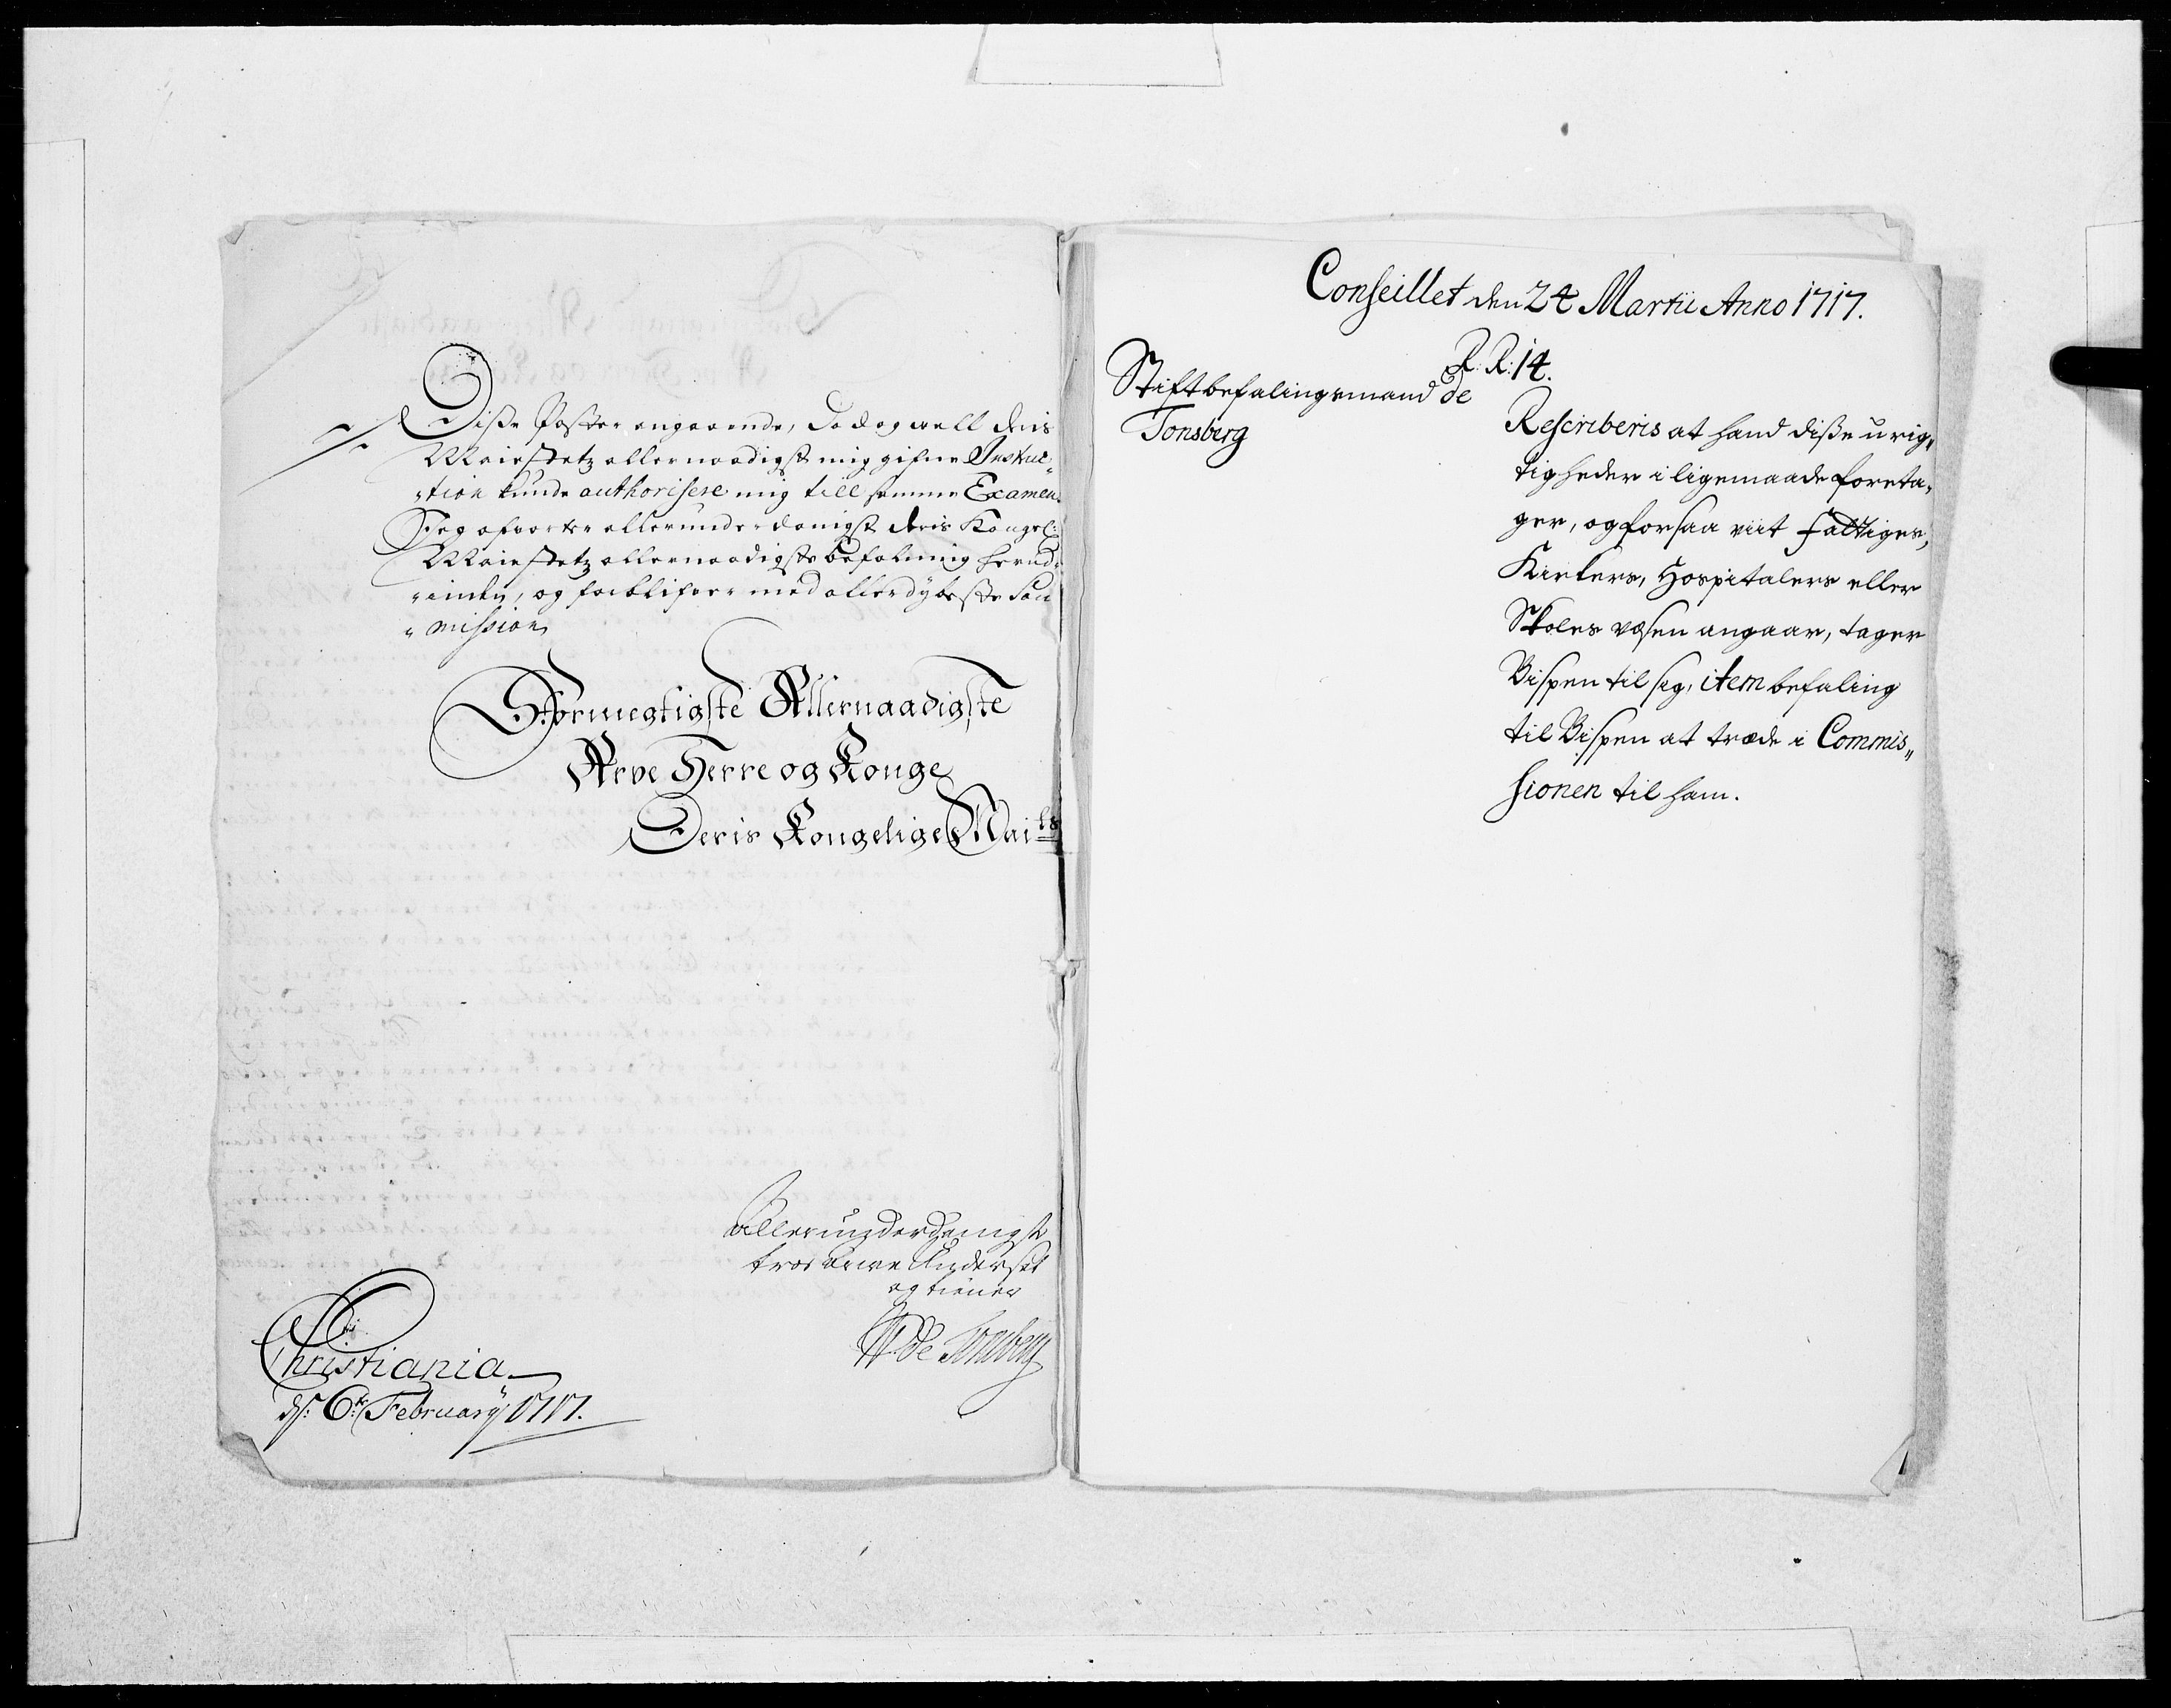 Diße Poster angaaende, Da dog well deris
Maiestetz allernaadigst mig gifne Instruc„
„tion kunde authorisere mig till samme Examen.
Jeg afvarter allerunderdanigst deris Kongel:
Maiestetz allernaadigste befalning herud„
„inden, og forblifver med allerdybeste Sou„
„mission
Stormegtigste Allernaadigste
Arve Herre og Konge
Deris Kongelige Maits
allerunderdanigst
troe arve Undersat
og tiener
W de Tonsberg
Christiania
ds: 6te February 1717.
Conseillet den 24 Martii Anno 1717.
R: R: 14.
Stiftbefalingsmand de
Tonsberg
Rescriberis at hand diße urig„
tigheder i ligemaade foreta„
ger, og forsaa viit fattiges,
Kirkers, Hospitalers eller
Skoles væsen angaar, tager
Bispen til sig, item befaling
til Bispen at træde i Commis„
sionen til ham.